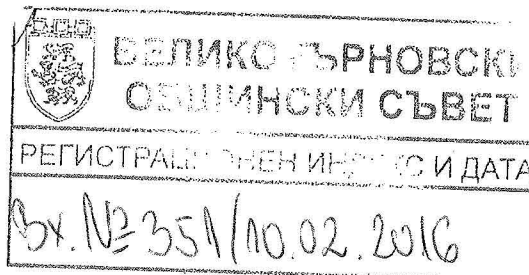 ВЕЛИКОТЪРНОВСКИ
ОБЩИНСКИ СЪВЕТ
РЕГИСТРАЦИОНЕН ИНДЕКС И ДАТА
Вх. № 351/10.02.2016